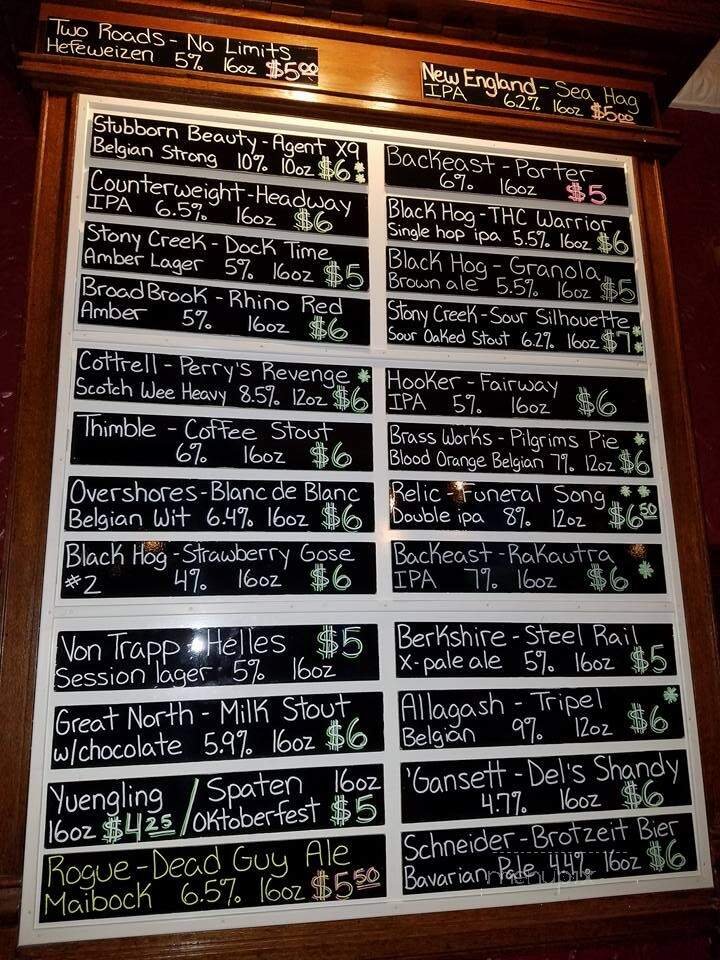 Two Roads - No Limits
Hefeweizen 5% 16oz $5.00
New England - Sea Hag
IPA 6.2% 16oz $5.00
Stubborn Beauty - Agent X9
Belgian Strong 10% 10oz $6 **
Counterweight - Headway
IPA 6.5% 16oz $6
Stony Creek - Dock Time
Amber Lager 5% 16oz $5
Broad Brook - Rhino Red
Amber 5% 16oz $6
Cottrell - Perry's Revenge *
Scotch Wee Heavy 8.5% 12oz $6
Thimble - Coffee Stout
6% 16oz $6
Overshores - Blanc de Blanc
Belgian Wit 6.4% 16oz $6
Black Hog - Strawberry Gose
#2 4% 16oz $6
Von Trapp - Helles $5
Session lager 5% 16oz
Great North - Milk Stout
w/chocolate 5.9% 16oz $6
Yuengling / Spaten 16oz
16oz $4.25 / Oktoberfest $5
Rogue - Dead Guy Ale
Maibock 6.5% 16oz $5.50
Backeast - Porter
6% 16oz $5
Black Hog - THC Warrior
Single hop ipa 5.5% 16oz $6
Black Hog - Granola
Brown ale 5.5% 16oz $5
Stony Creek - Sour Silhouette *
Sour Oaked Stout 6.2% 16oz $7 *
Hooker - Fairway
IPA 5% 16oz $6
Brass Works - Pilgrims Pie *
Blood Orange Belgian 7% 12oz $6
Relic - Funeral Song * *
Double ipa 8% 12oz $6.50
Backeast - Rakautra
IPA 7% 16oz $6 *
Berkshire - Steel Rail
X-pale ale 5% 16oz $5
Allagash - Tripel *
Belgian 9% 12oz $6
'Gansett - Del's Shandy
4.7% 16oz $6
Schneider - Brotzeit Bier
Bavarian Pale 4.4% 16oz $6